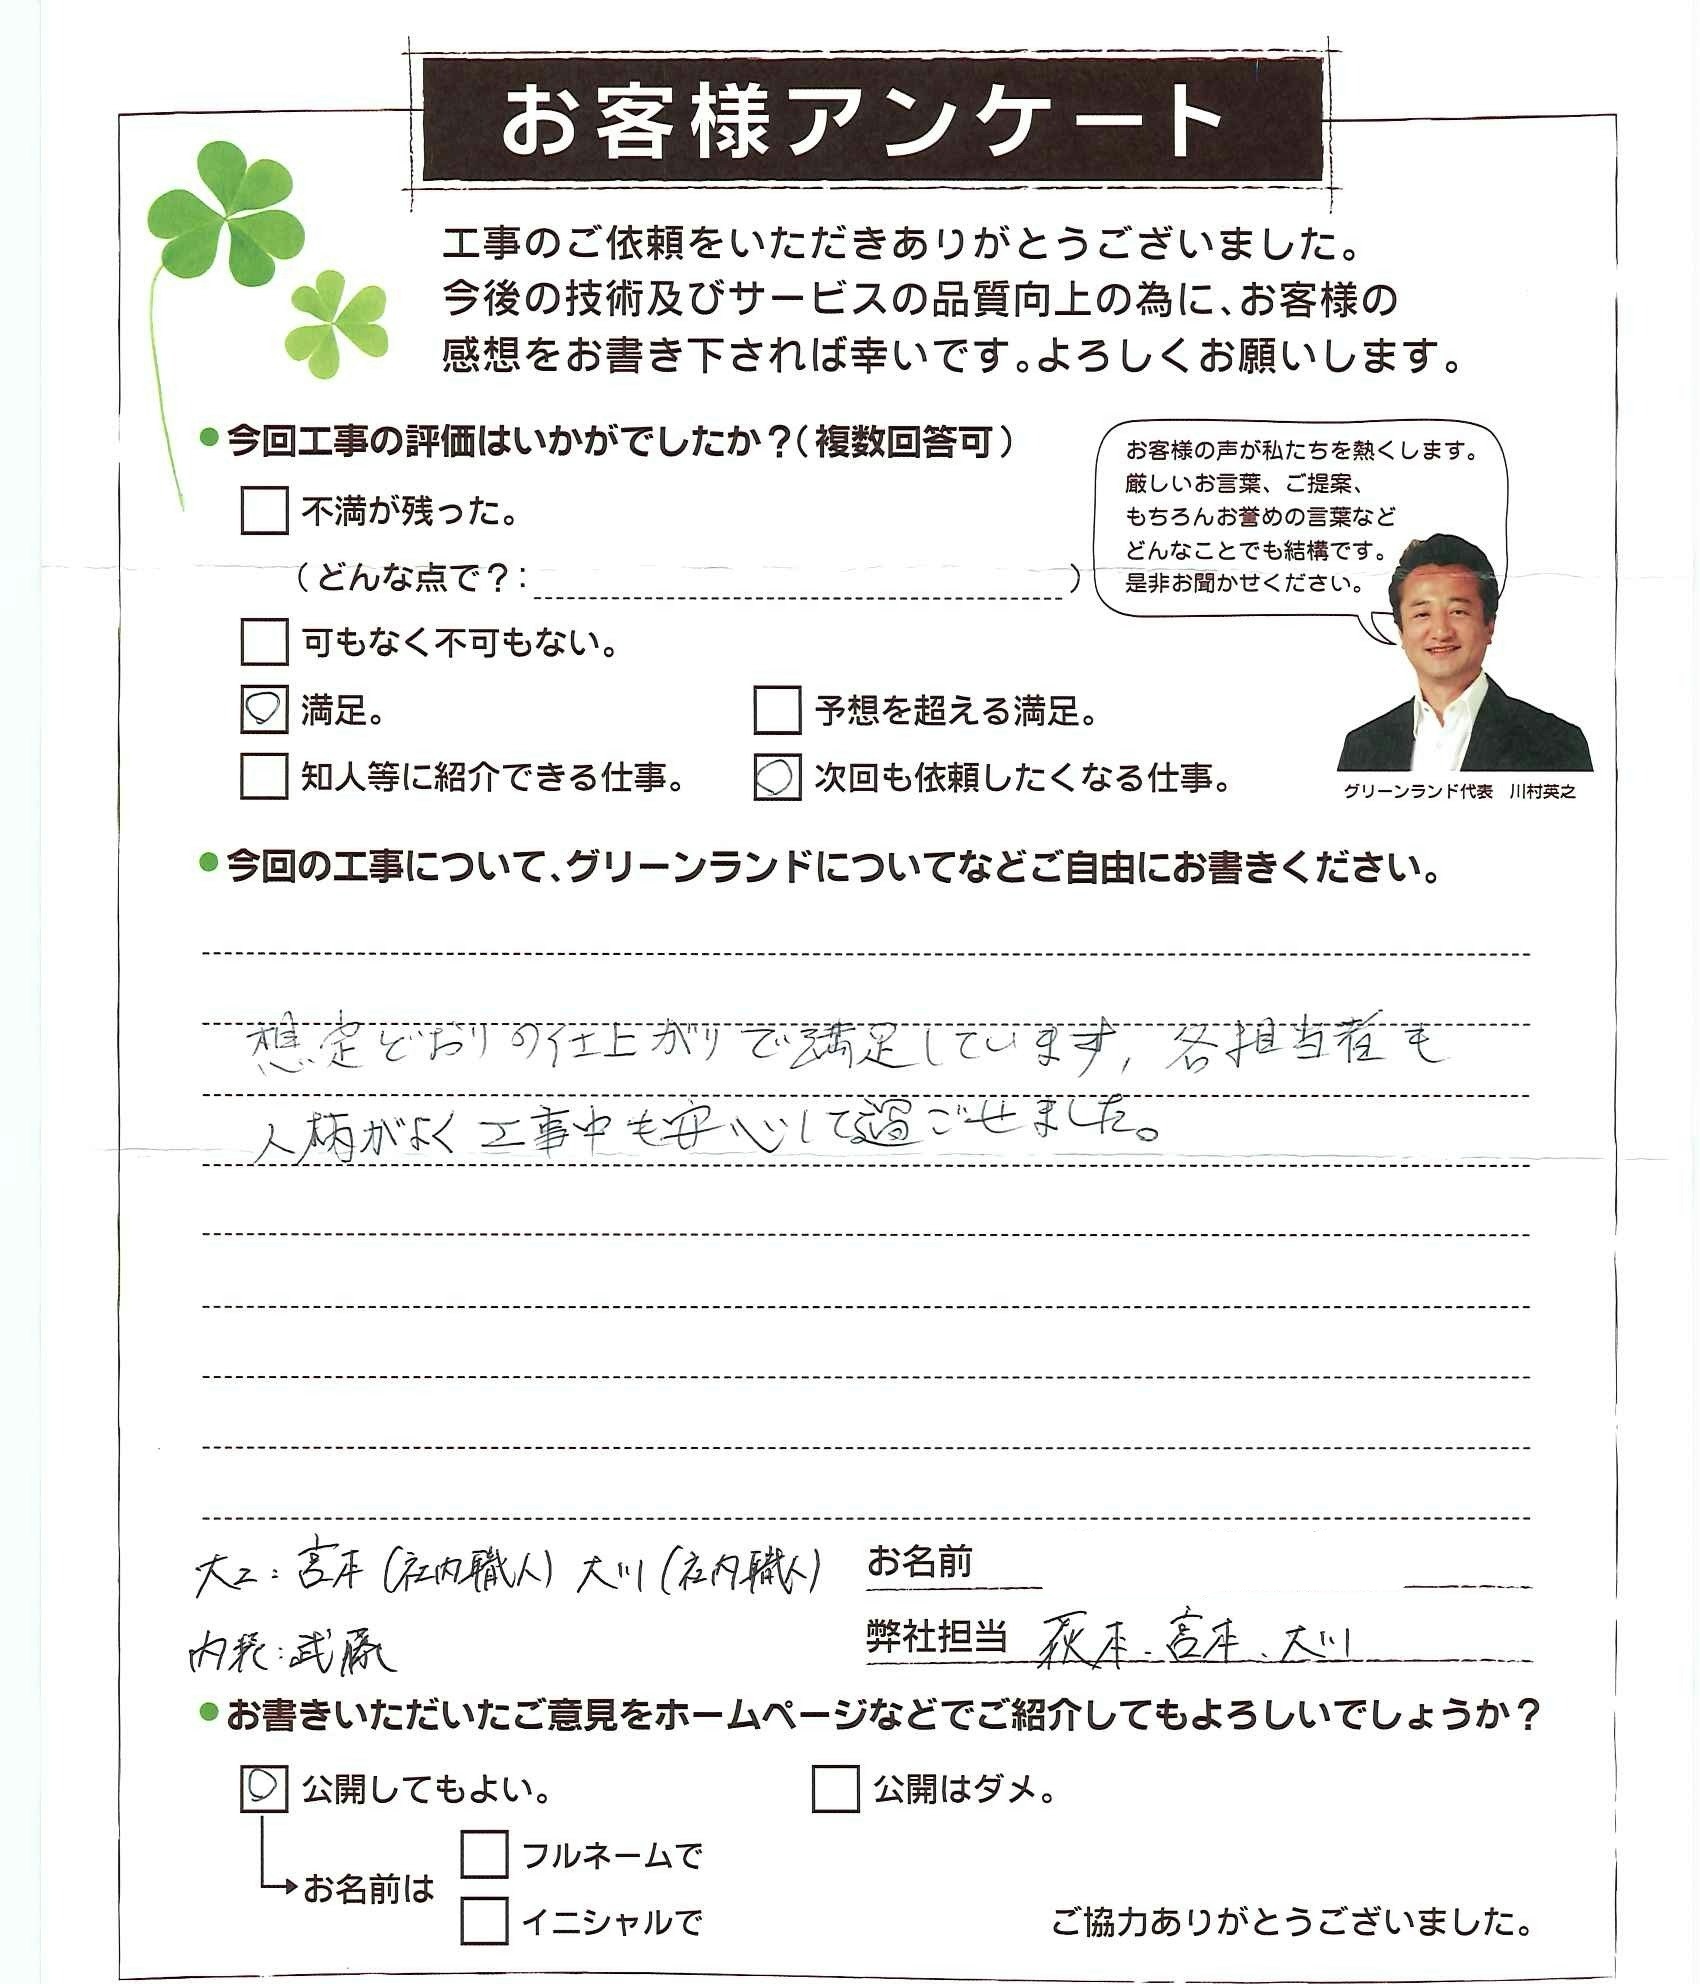 お客様アンケート
工事のご依頼をいただきありがとうございました。
今後の技術及びサービスの品質向上の為に、お客様の
感想をお書き下されば幸いです。よろしくお願いします。
●今回工事の評価はいかがでしたか?(複数回答可)
不満が残った。
(どんな点で?: )
可もなく不可もない。
満足。
予想を超える満足。
知人等に紹介できる仕事。
次回も依頼したくなる仕事。
お客様の声が私たちを熱くします。
厳しいお言葉、ご提案、
もちろんお誉めの言葉など
どんなことでも結構です。
是非お聞かせください。
グリーンランド代表 川村英之
●今回の工事について、グリーンランドについてなどご自由にお書きください。
想定どおりの仕上がりで満足しています, 各担当者も
人柄がよく工事中も安心して過ごせました。
大工:宮本(社内職人) 大川(社内職人)
内装:武藤
お名前
弊社担当 荻本、宮本、大川
●お書きいただいたご意見をホームページなどでご紹介してもよろしいでしょうか?
公開してもよい。
公開はダメ。
お名前は
フルネームで
イニシャルで
ご協力ありがとうございました。